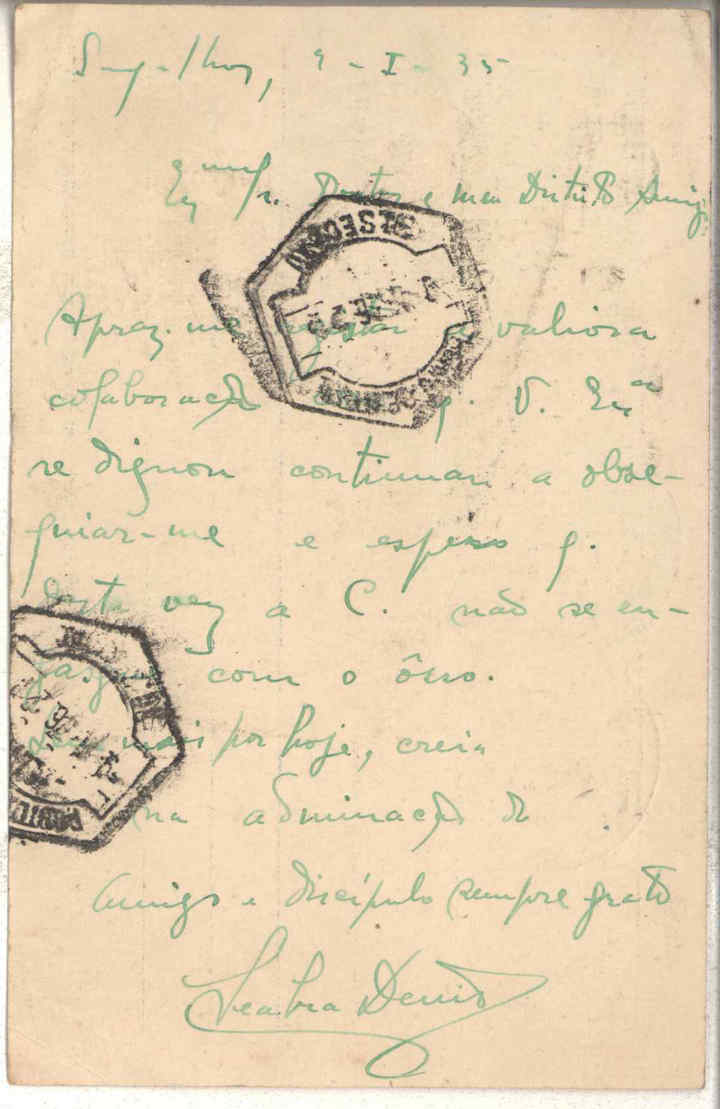 Sangalhos, 9-I-35
Exmo Sr. Doutor e meu Distinto Amigo
Apraz-me registar a valiosa
colaboração q. V. Exª
se dignou continuar a obse-
quiar-me e espero q.
desta vez a C. não se en-
gasgue com o ôsso.
Sem mais por hoje, creia
na admiração do
Amigo e discípulo sempre grato
Seabra Deniz
2ª SECÇÃO